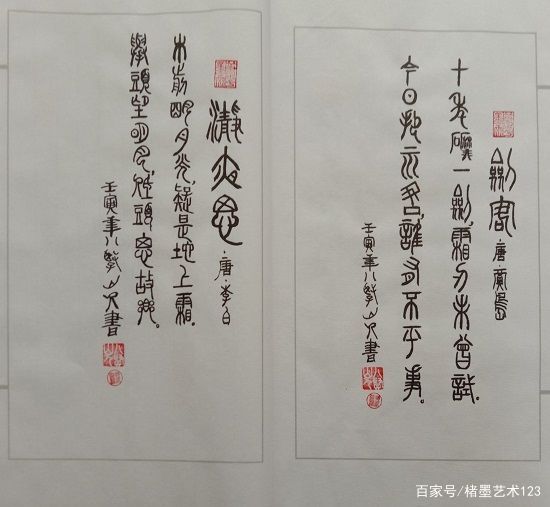 劍客 唐 賈島
十年磨一劍,霜刃未曾試。
今日把示君,誰有不平事。
壬寅年八山人書
瀞夜思 唐 李白
床前明月光,疑是地上霜。
舉頭望明月,低頭思故鄉。
壬寅年八山人書
百家号/楮墨艺术123